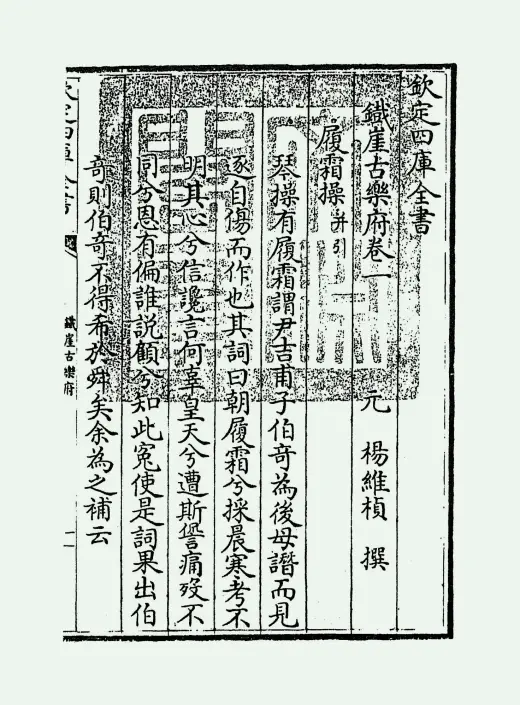 欽定四庫全書
鐵崖古樂府卷一
元 楊維楨 撰
履霜操并引
琴操有履霜謂尹吉甫子伯奇為後母譖而見
逐自傷而作也其詞曰朝履霜兮採晨寒考不
明其心兮信讒言何辜皇天兮遭斯諐痛歿不
同兮恩有偏誰說顧兮知此冤使是詞果出伯
奇則伯奇不得希於舜矣余為之補云
鐵崖古樂府